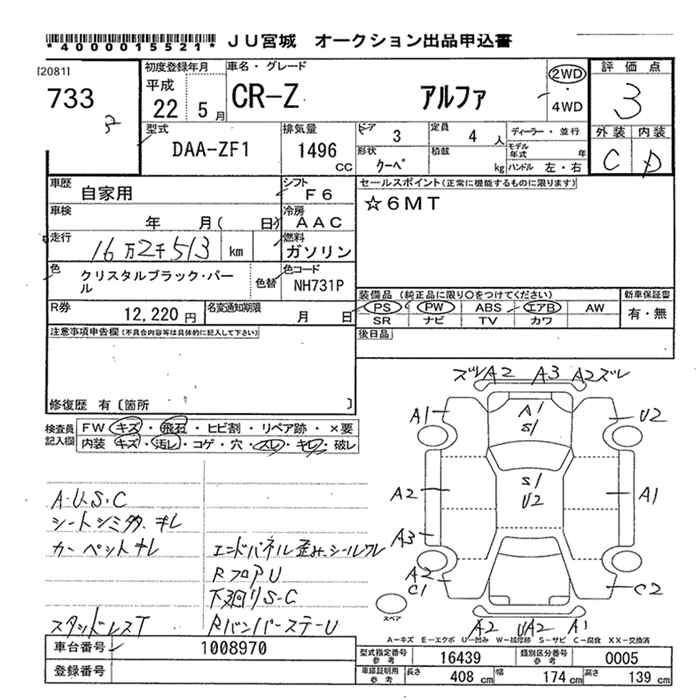 *4000015521* JU宮城 オークション出品申込書
[2081]
733
初度登録年月
平成
22 5月
車名・グレード
CR-Z アルファ
2WD
・
4WD
評価点
3
外装 内装
C D
型式
DAA-ZF1
排気量
1496
CC
ドア
3
定員
4 人
ディーラー・並行
形状
クーペ
積載
kg
モデル年式 年
ハンドル 左・右
車歴
自家用
シフト
F6
セールスポイント(正常に機能するものに限ります)
☆6MT
車検
年 月( 日)
冷房
AAC
走行
16万2千513 km
燃料
ガソリン
色
クリスタルブラック・パール
色替
色コード
NH731P
装備品(純正品に限り○をつけてください)
PS PW ABS エアB AW
SR ナビ TV カワ
新車保証書
有・無
R券
12,220円
名変通知期限
月 日
後日品
注意事項申告欄(不具合内容等は具体的に記入して下さい)
修復歴 有〔箇所 〕
検査員記入欄
FW キズ・飛石・ヒビ割・リペア跡・×要
内装 キズ・汚レ・コゲ・穴・スレ・キレ・破レ
A・U・S・C
シートシミタ、キレ
カーペットキレ
エンドパネル歪み、シールワレ
RフロアU
下廻りS・C
スタッドレスT
RバンパーステーU
ズレA2 A3 A2ズレ
A1 A1 S1 U2
S1 U2
A2 A1
A3
A2 C1 C2
A2 UA2 A1
スペア
A-キズ E-エクボ U-凹み W-補修跡 S-サビ C-腐食 XX-交換済
車台番号 1008970
登録番号
型式指定番号 参考 16439
類別区分番号 参考 0005
車庫証明用 参考 長さ 408 cm 幅 174 cm 高さ 139 cm